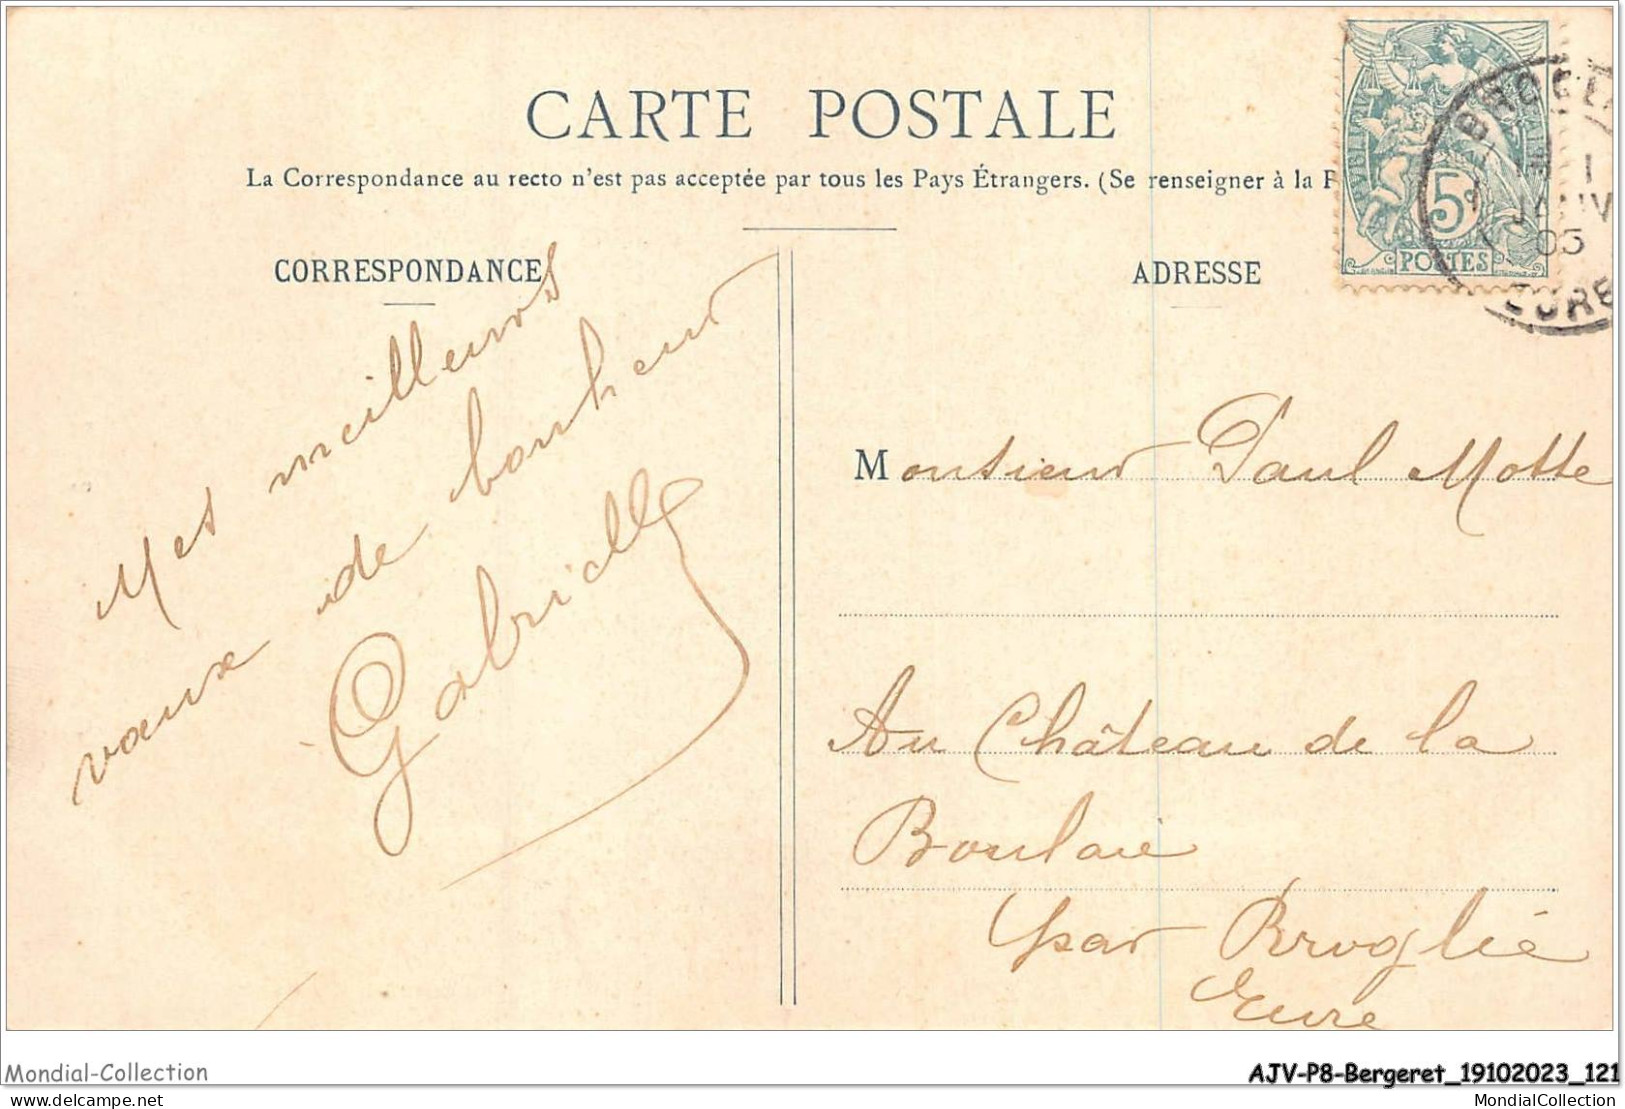 CARTE POSTALE
La Correspondance au recto n'est pas acceptée par tous les Pays Étrangers. (Se renseigner à la P
CORRESPONDANCE
Mes meilleurs
vœux de bonheur
Gabrielle
ADRESSE
5c
POSTES
BROGL
1
JANV
05
EURE
Monsieur Paul Motte
Au Château de la
Boulaie
par Broglié
Eure
Mondial-Collection
AJV-P8-Bergeret_19102023_121
delcampe.net
MondialCollection